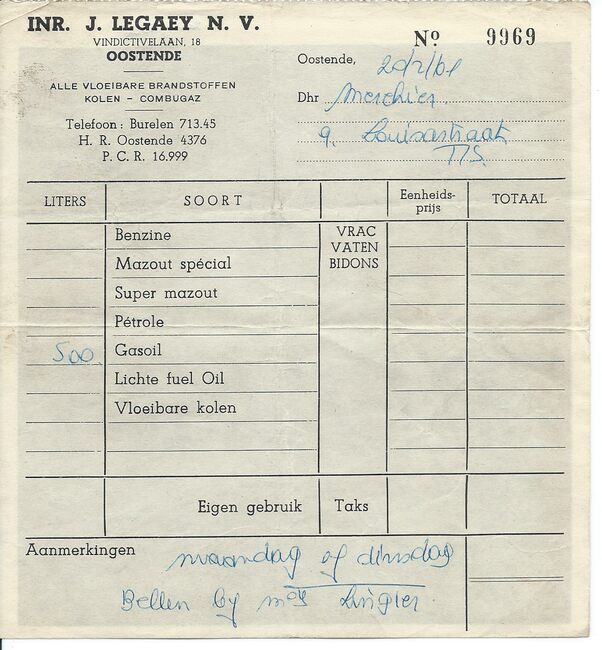 INR. J. LEGAEY N. V.
VINDICTIVELAAN, 18
OOSTENDE
ALLE VLOEIBARE BRANDSTOFFEN
KOLEN - COMBUGAZ
Telefoon: Burelen 713.45
H. R. Oostende 4376
P. C. R. 16.999
No 9969
Oostende,
Dhr Merchier
9. Louisastraat
LITERS SOORT Eenheids-prijs TOTAAL
Benzine VRAC
Mazout spécial VATEN
Super mazout BIDONS
Pétrole
500 Gasoil
Lichte fuel Oil
Vloeibare kolen
Eigen gebruik Taks
Aanmerkingen maandag of dinsdag
Bellen by